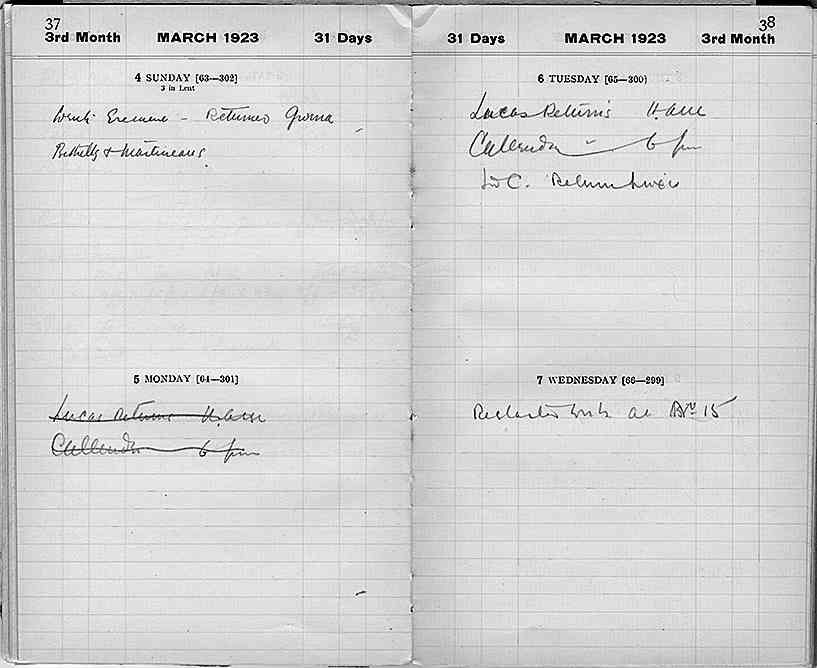 37
3rd Month MARCH 1923 31 Days
4 SUNDAY [63—302]
3 in Lent
Returned Gurna
Bethells & Martineaus
5 MONDAY [64—301]
Lucas returns 11. a.m.
Callender 6 pm
38
31 Days MARCH 1923 3rd Month
6 TUESDAY [65—300]
Lucas Returns 11 a.m.
Callender " 6 pm
Ld C. Return Luxor
7 WEDNESDAY [66—299]
work at No 15